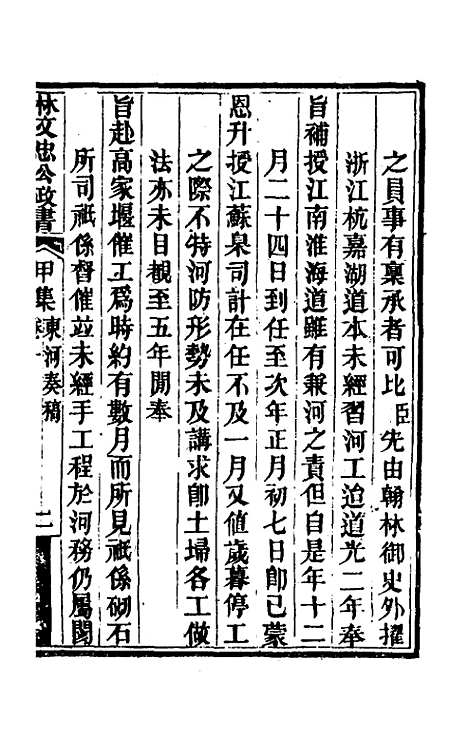 之員事有稟承者可比臣先由翰林御史外擢
浙江杭嘉湖道本未經習河工迨道光二年奉
旨補授江南淮海道雖有兼河之責但自是年十二
月二十四日到任至次年正月初七日卽已蒙
恩升授江蘇臬司計在任不及一月又値歲暮停工
之際不特河防形勢未及講求卽土埽各工做
法亦未目覩至五年閒奉
旨赴高家堰催工爲時約有數月而所見祇係砌石
所司祇係督催並未經手工程於河務仍屬闊
林文忠公政書
甲集
東河奏稿
二